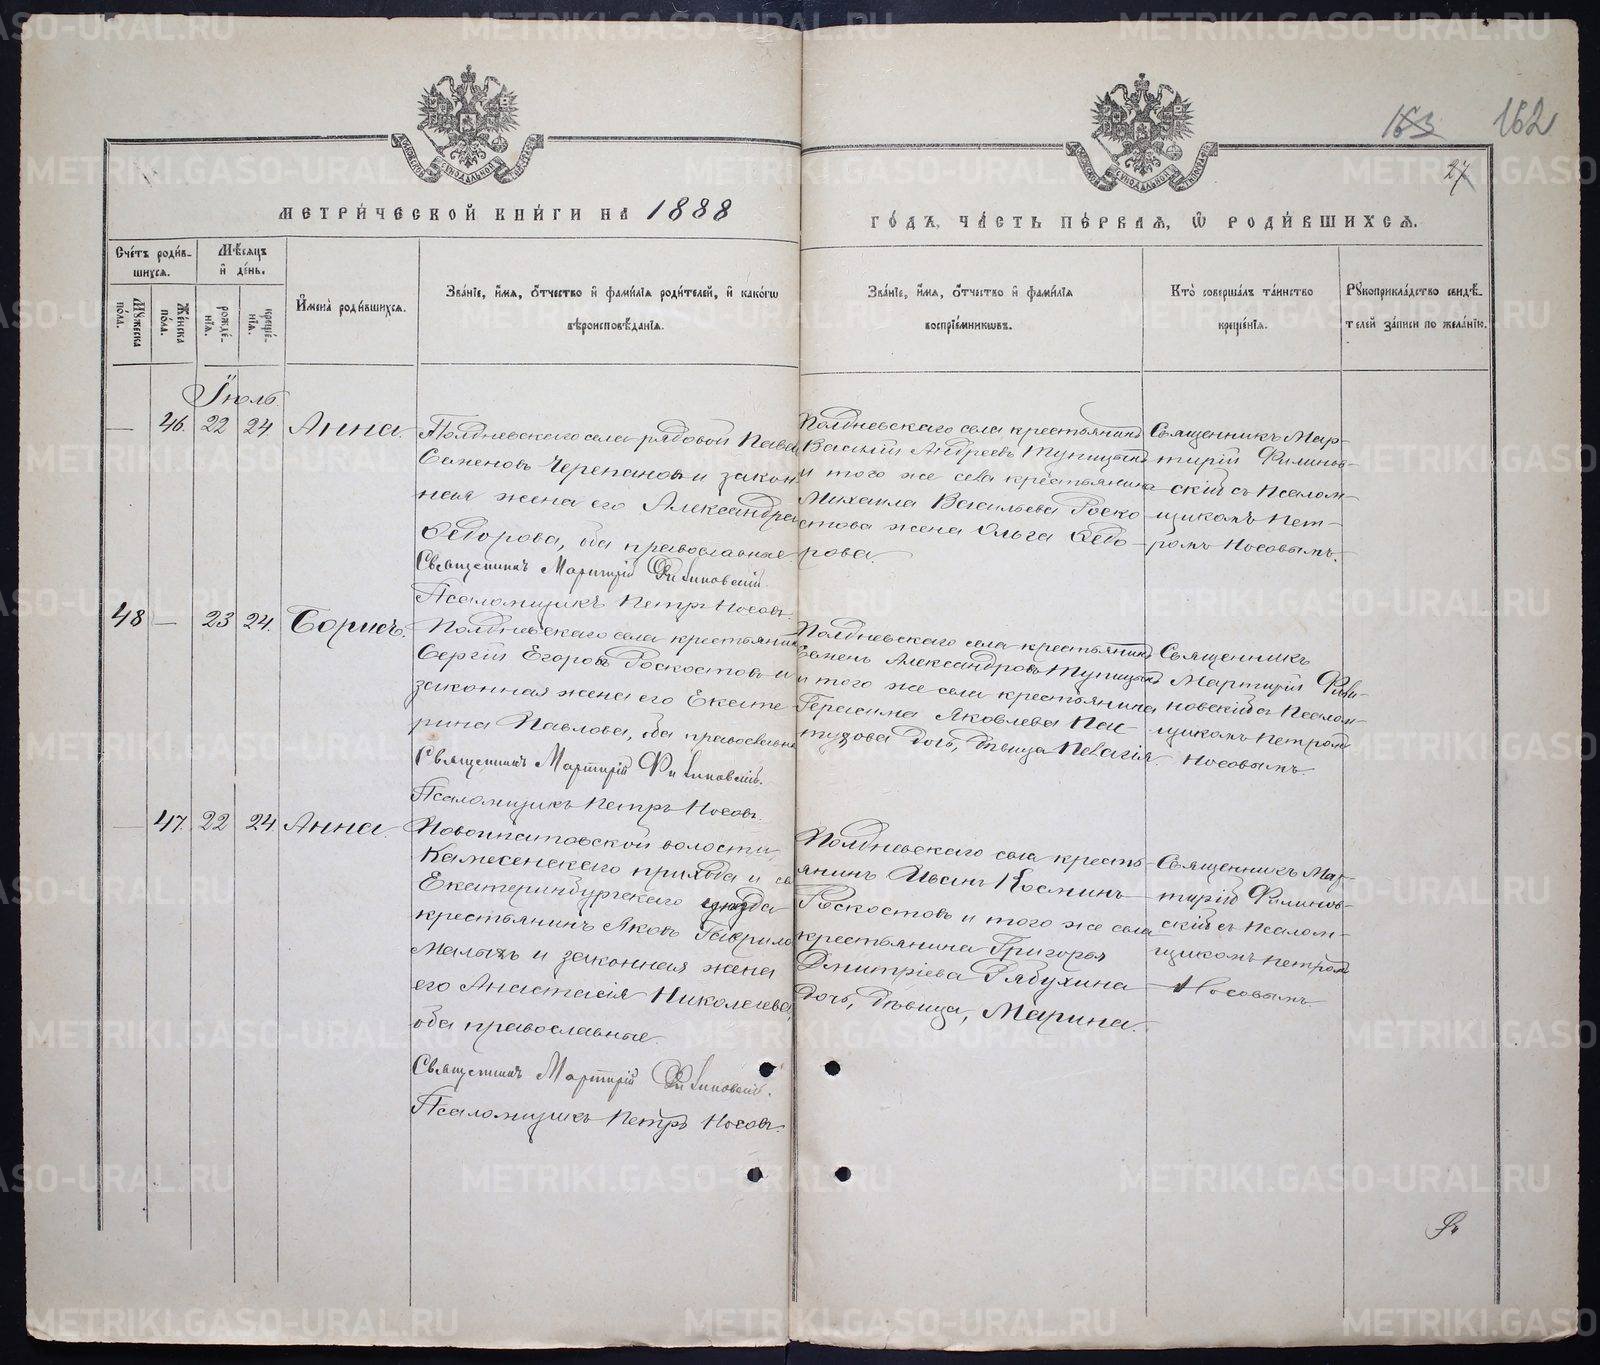 162
27
МЕТРИ́ЧЕСКОЙ КНИ́ГИ НА 1888
ГО́ДЪ, ЧА́СТЬ ПЕ́РВАѦ, Ѡ҆ РОДИ́ВШИХСѦ.
Сче́тъ роди́в-
шихсѧ.
Мѣ́сѧцъ
и҆ де́нь.
Мꙋ́жеска
по́ла.
Же́нска
по́ла.
рожде́-
нїѧ.
креще́-
нїѧ.
И҆мена̀ роди́вшихсѧ.
Зва́нїе, и҆́мѧ, ѻ҆́тчество и҆ фамі́лїѧ роди́телей, и҆ како́гѡ
вѣроисповѣ́данїѧ.
Зва́нїе, и҆́мѧ, ѻ҆́тчество и҆ фамі́лїѧ
воспрїе́мникѡвъ.
Кто̀ соверша́лъ та́инство
креще́нїѧ.
Рꙋкоприкла́дство свидѣ́-
телей за́писи по жела́нїю.
Іюль
— 46. 22 24 Анна.
Полдневскаго села рядовой Павел
Семеновъ Черепановъ и закон
ная жена его Александра
Ѳедорова, оба православные
Священникъ Мартирій Филиновскій.
Псаломщикъ Петръ Носовъ.
Полдневскаго села крестьянинъ
Василій Андреевъ Тупицынъ
и того же села крестьянина
Михаила Васильева Роско
стова жена Ольга Ѳедо-
рова.
Священникъ Мар-
тирій Филинов-
скій съ Псалом-
щикомъ Пет-
ромъ Носовымъ.
48 — 23 24. Борисъ.
Полдневскаго села крестьянинъ
Сергій Егоровъ Роскостовъ и
законная жена его Екате
рина Павлова, оба православные
Священникъ Мартирій Филиновскій.
Псаломщикъ Петръ Носовъ.
Полдневскаго села крестьянинъ
Семенъ Александровъ Тупицынъ
и того же села крестьянина
Герасима Яковлева
дочь, дѣвица Пелагія.
Священникъ
Мартирій Фили-
новскій съ Псалом-
щикомъ Петромъ
Носовымъ.
— 47. 22 24 Анна.
Новоипатовской волости,
прихода и села
Екатеринбургскаго уѣзда
крестьянинъ Яковъ Гаврилов
Малыхъ и законная жена
его Анастасія Николаева,
оба православные.
Священникъ Мартирій Филиновскій.
Псаломщикъ Петръ Носовъ.
Полдневскаго села кресть-
янинъ Иванъ Косминъ
Роскостовъ и того же села
крестьянина Григорья
Дмитріева Рябухина
дочь, дѣвица, Марина.
Священникъ Мар-
тирій Филинов-
скій съ Псалом-
щикомъ Петромъ
Носовымъ
METRIKI.GASO-URAL.RU